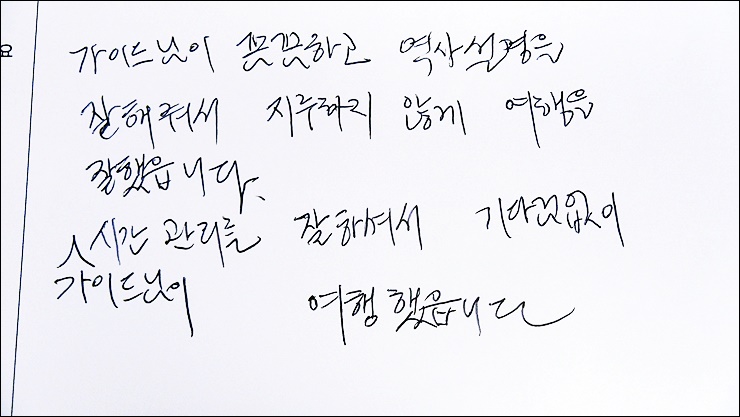 가이드님이 끗끗하고 역사설명을
잘해줘서 지루하지 않게 여행을
잘했읍니다.
시간 관리를 잘하셔서 기다림없이
가이드님이 여행했읍니다